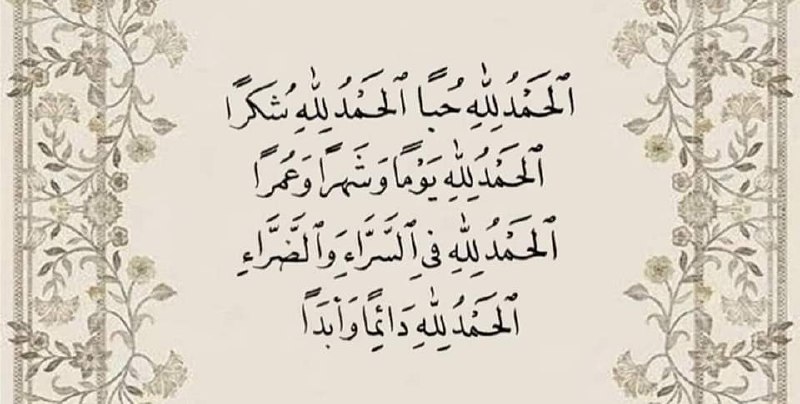 ٱلْحَمْدُ لِلّٰهِ حُبًا ٱلْحَمْدُ لِلّٰهِ شُكرًا
ٱلْحَمْدُ لِلّٰهِ يَوْمًا وَشَهرًا وَعُمرًا
ٱلْحَمْدُ لِلّٰهِ فِي ٱلسَّرَّاءِ وَٱلضَّرَّاءِ
ٱلْحَمْدُ لِلّٰهِ دَائِمًا وَأَبَدًا